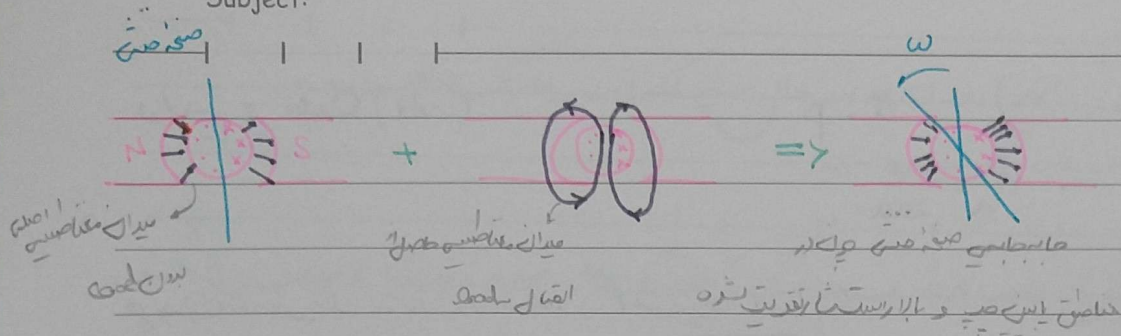 Subject:
صفحه خنثی
ω
N S + =>
میدان مغناطیسی اصلی
بدون load
میدان مغناطیسی حاصل از
اتصال load
جابجایی صفحه خنثی چون در
مناطق پایین چپ و بالا راست شار تقویت شده